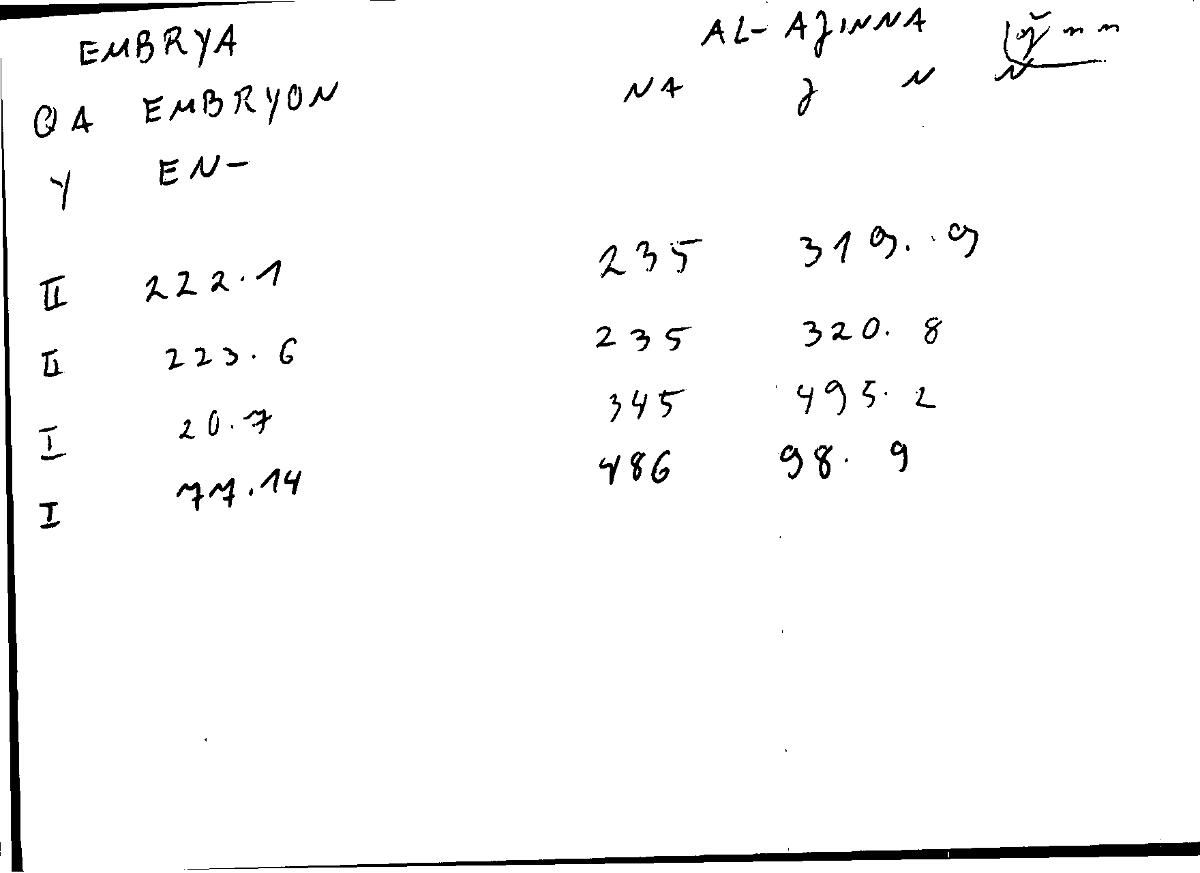 EMBRYA AL-AJINNA ǧnn
QA EMBRYON NA J N N
Y EN-
II 222.1 235 319.9
II 223.6 235 320.8
I 20.7 345 495.2
I 77.14 486 98.9